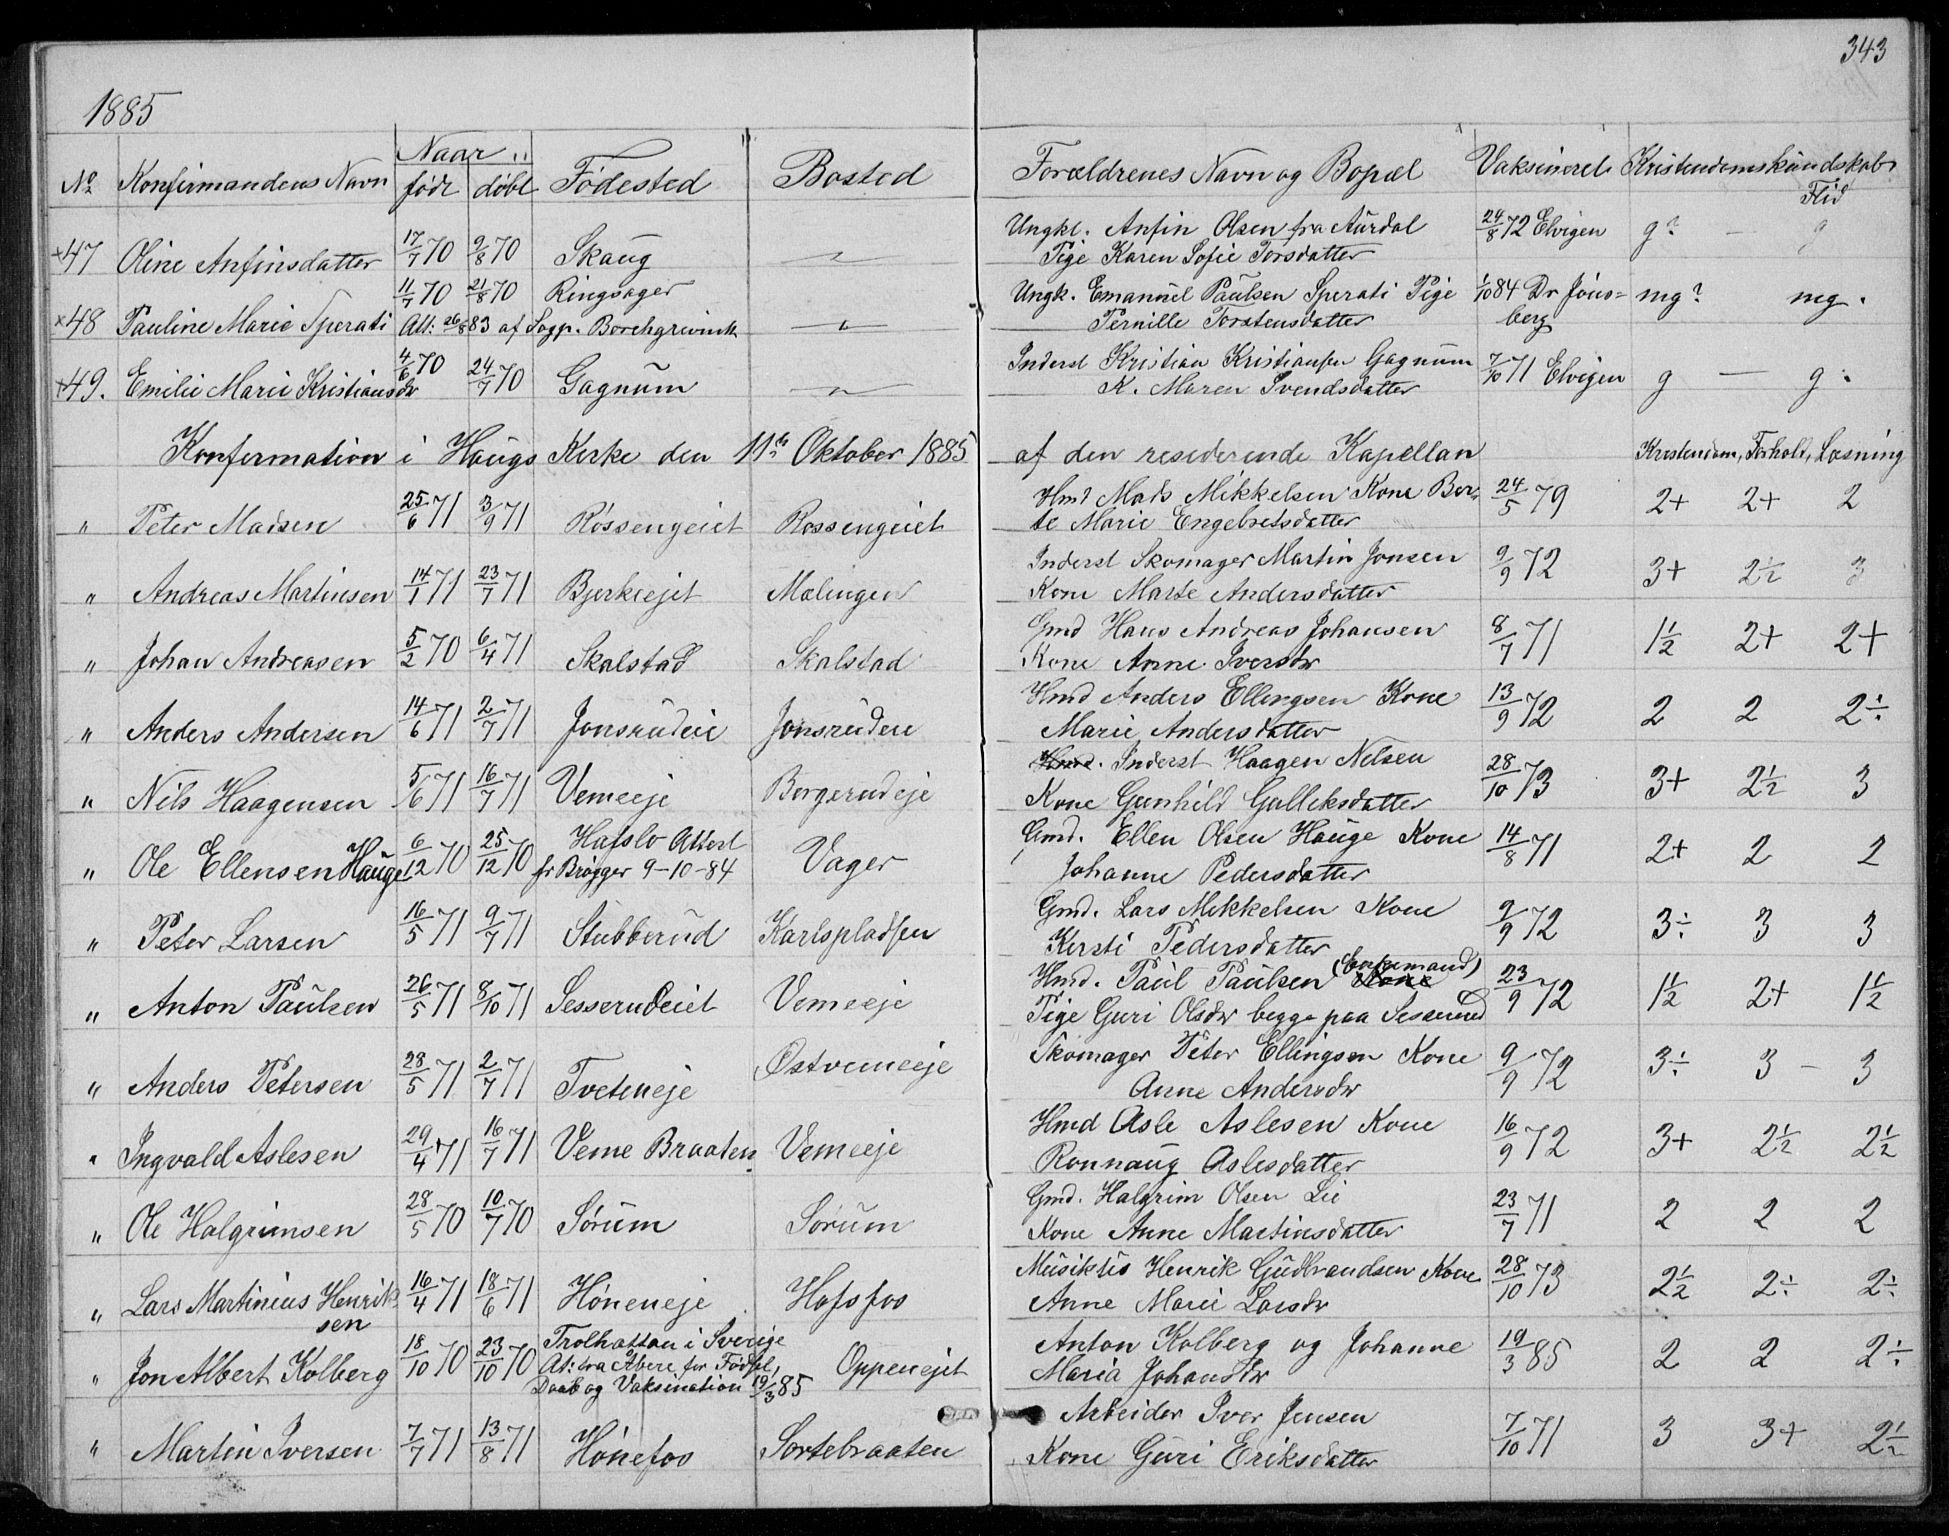 343
1885
No Konfirmandens Navn Naar født døbt Fødested Bosted Forældrenes Navn og Bopæl Vaksineret Kristendomskundskab Flid
×47 Oline Anfinsdatter 17/7 70 9/8 70 Skaug — Ungkl. Anfin Olsen fra Aurdal 24/8 72 Elvigen g? — g
Pige Karen Sofie Torsdatter
×48 Pauline Marie Sperati 11/7 70 21/8 70 Ringsager — Ungk. Emanuel Paulsen Sperati Pige 1/10 84 Dr Jons= mg? mg.
Att: 26/8 83 af Sogp. Borchgrevink Pernille Torstensdatter berg
×49. Emilie Marie Kristiansdr 4/6 70 24/7 70 Gagnum — Inderst Kristian Kristiansen Gagnum 7/10 71 Elvigen g — g.
K. Maren Svendsdatter
Konfirmation i Haugs Kirke den 11te Oktober 1885 af den residerende Kapellan Kristendom, Forhold, Læsning
" Peter Madsen 25/6 71 3/9 71 Røssengeiet Rossengeiet Hmd Mads Mikkelsen Kone Ber- 24/5 79 2+ 2+ 2
te Marie Engebretsdatter
" Andreas Martinsen 14/1 71 23/7 71 Bjerkeejet Mælingen Inderst Skomager Martin Jonsen 9/9 72 3+ 2½ 3
Kone Marte Andersdatter
" Johan Andreasen 5/2 70 6/4 71 Skalstad Skalstad Gmd Hans Andreas Johansen 8/7 71 1½ 2+ 2+
Kone Anne Iversdr
" Anders Andersen 14/6 71 2/7 71 Jonsrudeie Jonsrudeie Hmd Anders Ellingsen Kone 13/9 72 2 2 2÷
Marie Andersdatter
" Nils Haagensen 5/6 71 16/7 71 Vemeeje Borgerudeje Hmd. Inderst Haagen Nelsen 28/10 73 3+ 2½ 3
Kone Gunhild Gulleksdatter
" Ole Ellensen Hauge 6/12 70 25/12 70 Hafslo Attest Vager Gmd. Ellen Olsen Hauge Kone 14/8 71 2+ 2 2
fr Brøgger 9-10-84 Johanne Pedersdatter
" Peter Larsen 16/5 71 9/7 71 Stubberud Karlspladsen Gmd. Lars Mikkelsen Kone 9/9 72 3÷ 3 3
Kersti Pedersdatter
" Anton Paulsen 26/5 71 8/10 71 Sesserudeiet Vemeeje Hmd. Paul Paulsen Kone (Enkemand) 23/9 72 1½ 2+ 1½
Pige Guri Olsdr begge paa Sesserud
" Anders Petersen 28/5 71 2/7 71 Tveteneje Østvemeeje Skomager Peter Ellingsen Kone 9/9 72 3÷ 3 — 3
Anne Andersdr
" Ingvald Aslesen 29/4 71 16/7 71 Veme Braaten Vemeeje Hmd Asle Aslesen Kone 16/9 72 3+ 2½ 2½
Ronnaug Aslesdatter
" Ole Halgrimsen 28/5 70 10/7 70 Sørum Sorum Gmd. Halgrim Olsen Lie 23/7 71 2 2 2
Kone Anne Martinsdatter
" Lars Martinius Henrik- 16/4 71 18/6 71 Høneneje Hofsfos Musiktis Henrik Gudbrandsen Kone 28/10 73 2½ 2÷ 2÷
sen Anne Marie Larsdr
" Jon Albert Kolberg 18/10 70 23/10 70 Trolhattan i Sverige Oppenejet Anton Kolberg og Johanne 19/3 85 2 2 2÷
At: fra Åbere for Fødsel, Maria Johansdr
Daab og Vaksination 19/3 85
" Martin Iversen 7/7 71 13/8 71 Hønefos Sortebraaten Arbeider Iver Jensen 7/10 71 3 3+ 2½
Kone Guri Eriksdatter